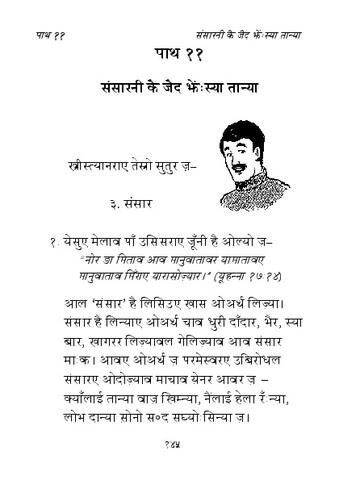 पाथ ११ संसारनी कै जैद भेंःस्या तान्या
पाथ ११
संसारनी कै जैद भेंःस्या तान्या
ख्रीस्त्यानराए तेस्रो सुतुर ज़–
३. संसार
१. येसुए मेलाव पाँ उसिसराए जूँनी है ओल्यो ज़–
"नोर ङा मिताव आव मानुवातावर यामातावए
मानुवाताव मिराए यारासोज़्यार।" (यूहन्ना १७:१४)
आल 'संसार' है लिसिउए खास ओअर्थ लिज़्या।
संसार है लिन्याए ओअर्थ चाव धुरी दाँदार, भैर, स्या
ब्वार, खागरर लिज़्यावल गेलिज़्याव आव संसार
माःक। आवए ओअर्थ ज़ परमेस्वरए उबिरोधल
संसारए ओदोज़्याव माचाव येनर आवर ज़ –
क्याँलाई तान्या वाज़ खिम्न्या, नैंलाई हेला रँःन्या,
लोभ दान्या सोनो स०द सघ्योःसिन्या ज़।
२४५